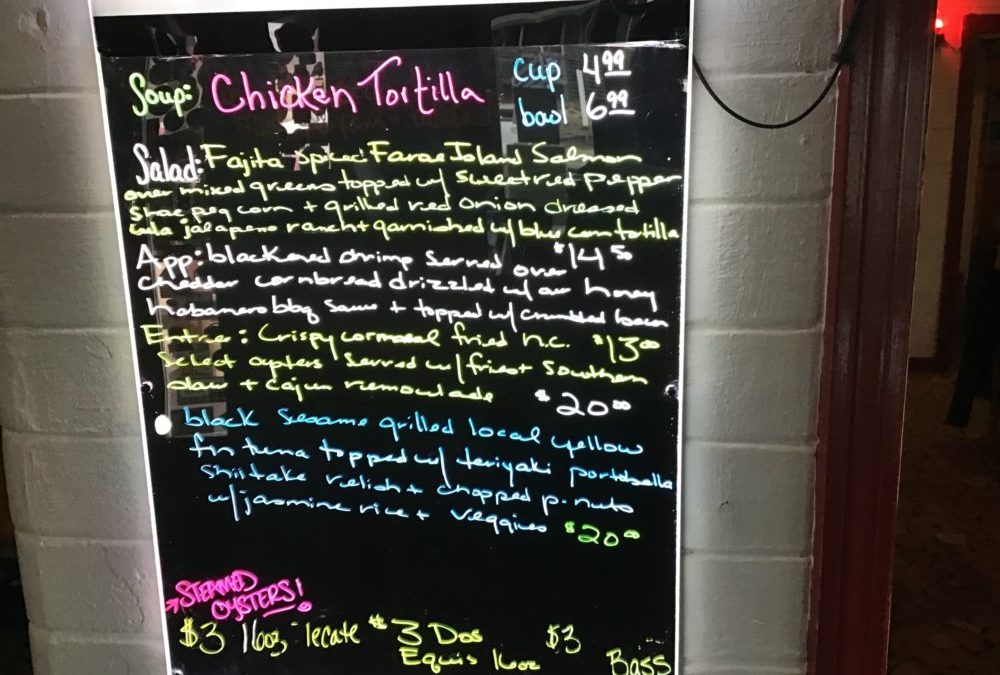 Soup: Chicken Tortilla cup 4.99
bowl 6.99
Salad: Fajita Spiced Faroe Island Salmon
over mixed greens topped w/ sweet red pepper
shoe peg corn + grilled red onion dressed
jalapeno ranch + garnished w/ blue corn tortilla
$14.50
App: blackened shrimp served over
cheddar cornbread drizzled w/ our honey
habanero bbq sauce + topped w/ crumbled bacon
$13.00
Entree: Crispy cornmeal fried n.c.
select oysters served w/ fries + southern
slaw + cajun remoulade $20.00
black sesame grilled local yellow
fin tuna topped w/ teriyaki portobella
shiitake relish + chopped p-nuts
w/ jasmine rice + veggies $20.00
STEAMED
OYSTERS!
$3 16oz Tecate $3 Dos $3
Equis 16oz Bass